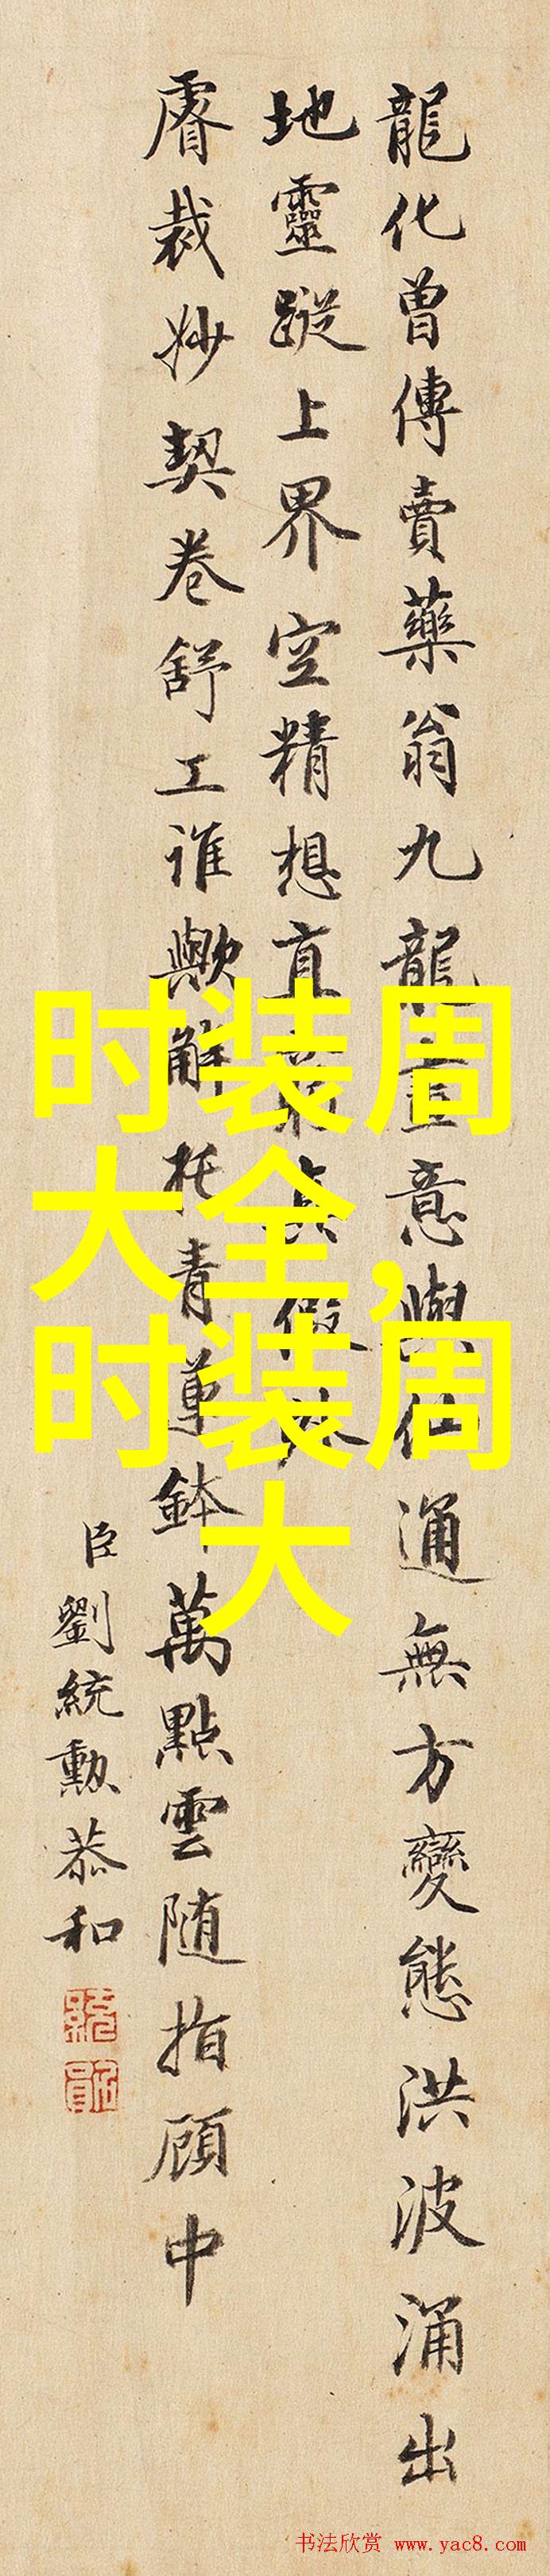 龍化曾傳賣藥翁九龍畫意與仙通無方變態洪波涌出
地靈蹤上界空精想直
睿裁妙契卷舒工誰歟解托青單鉢萬點雲随指顧中
臣劉統勳恭和
时装周
大全，
时装周
大
书法欣赏 www.yac8.com